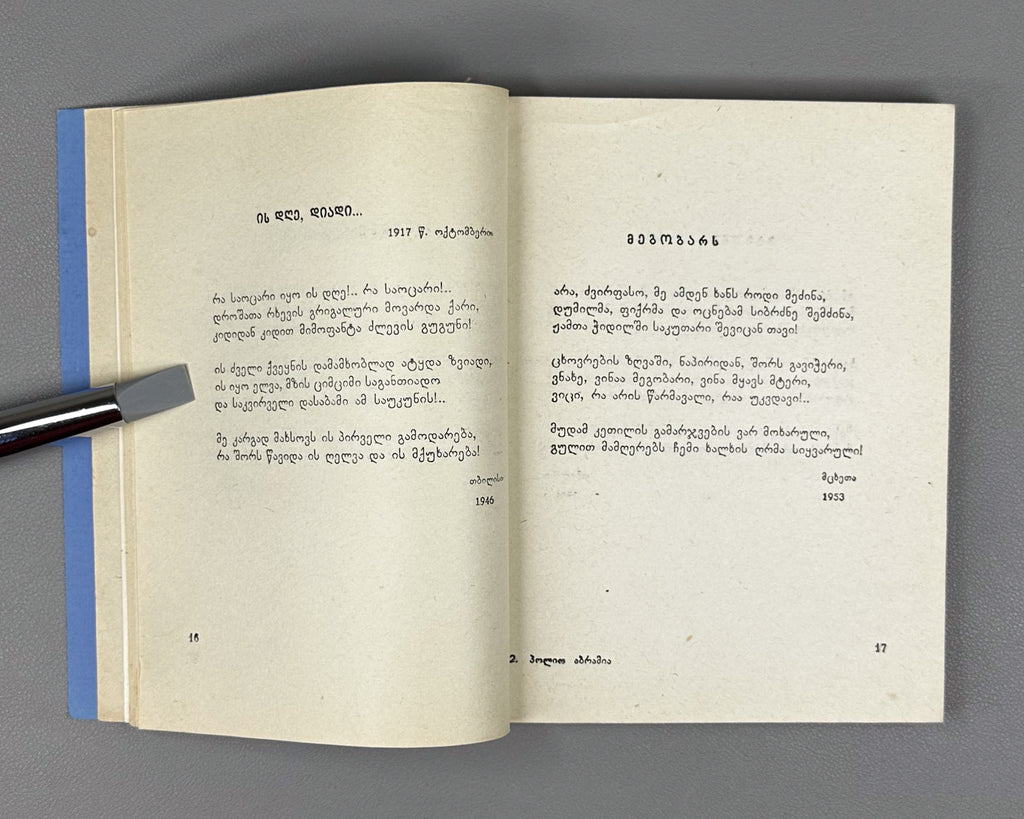 ის დღე, დიადი...
1917 წ. ოქტომბერი
რა საოცარი იყო ის დღე!.. რა საოცარი!..
დროშათა რხევის გრიგალური მოვარდა ქარი,
კიდიდან კიდით მიმოფანტა ძლევის გუგუნი!
ის ძველი ქვეყნის დამამხობლად ატყდა ზვიადი,
ის იყო ელვა, მზის ციმციმი საგანთიადო
და საკვირველი დასაბამი ამ საუკუნის!..
მე კარგად მახსოვს ის პირველი გამოდარება,
რა შორს წავიდა ის ღელვა და ის მქუხარება!
თბილისი
1946
16
მეგობარს
არა, ძვირფასო, მე ამდენ ხანს როდი მეძინა,
დუმილმა, ფიქრმა და ოცნებამ სიბრძნე შემძინა,
ჟამთა ჭიდილში საკუთარი შევიცან თავი!
ცხოვრების ზღვაში, ნაპირიდან, შორს გავიჭერი,
ვნახე, ვინაა მეგობარი, ვინა მყავს მტერი,
ვიცი, რა არის წარმავალი, რაა უკვდავი!..
მუდამ კეთილის გამარჯვების ვარ მოხარული,
გულით მამღერებს ჩემი ხალხის ღრმა სიყვარული!
მცხეთა
1953
2. პოლიო აბრამია
17